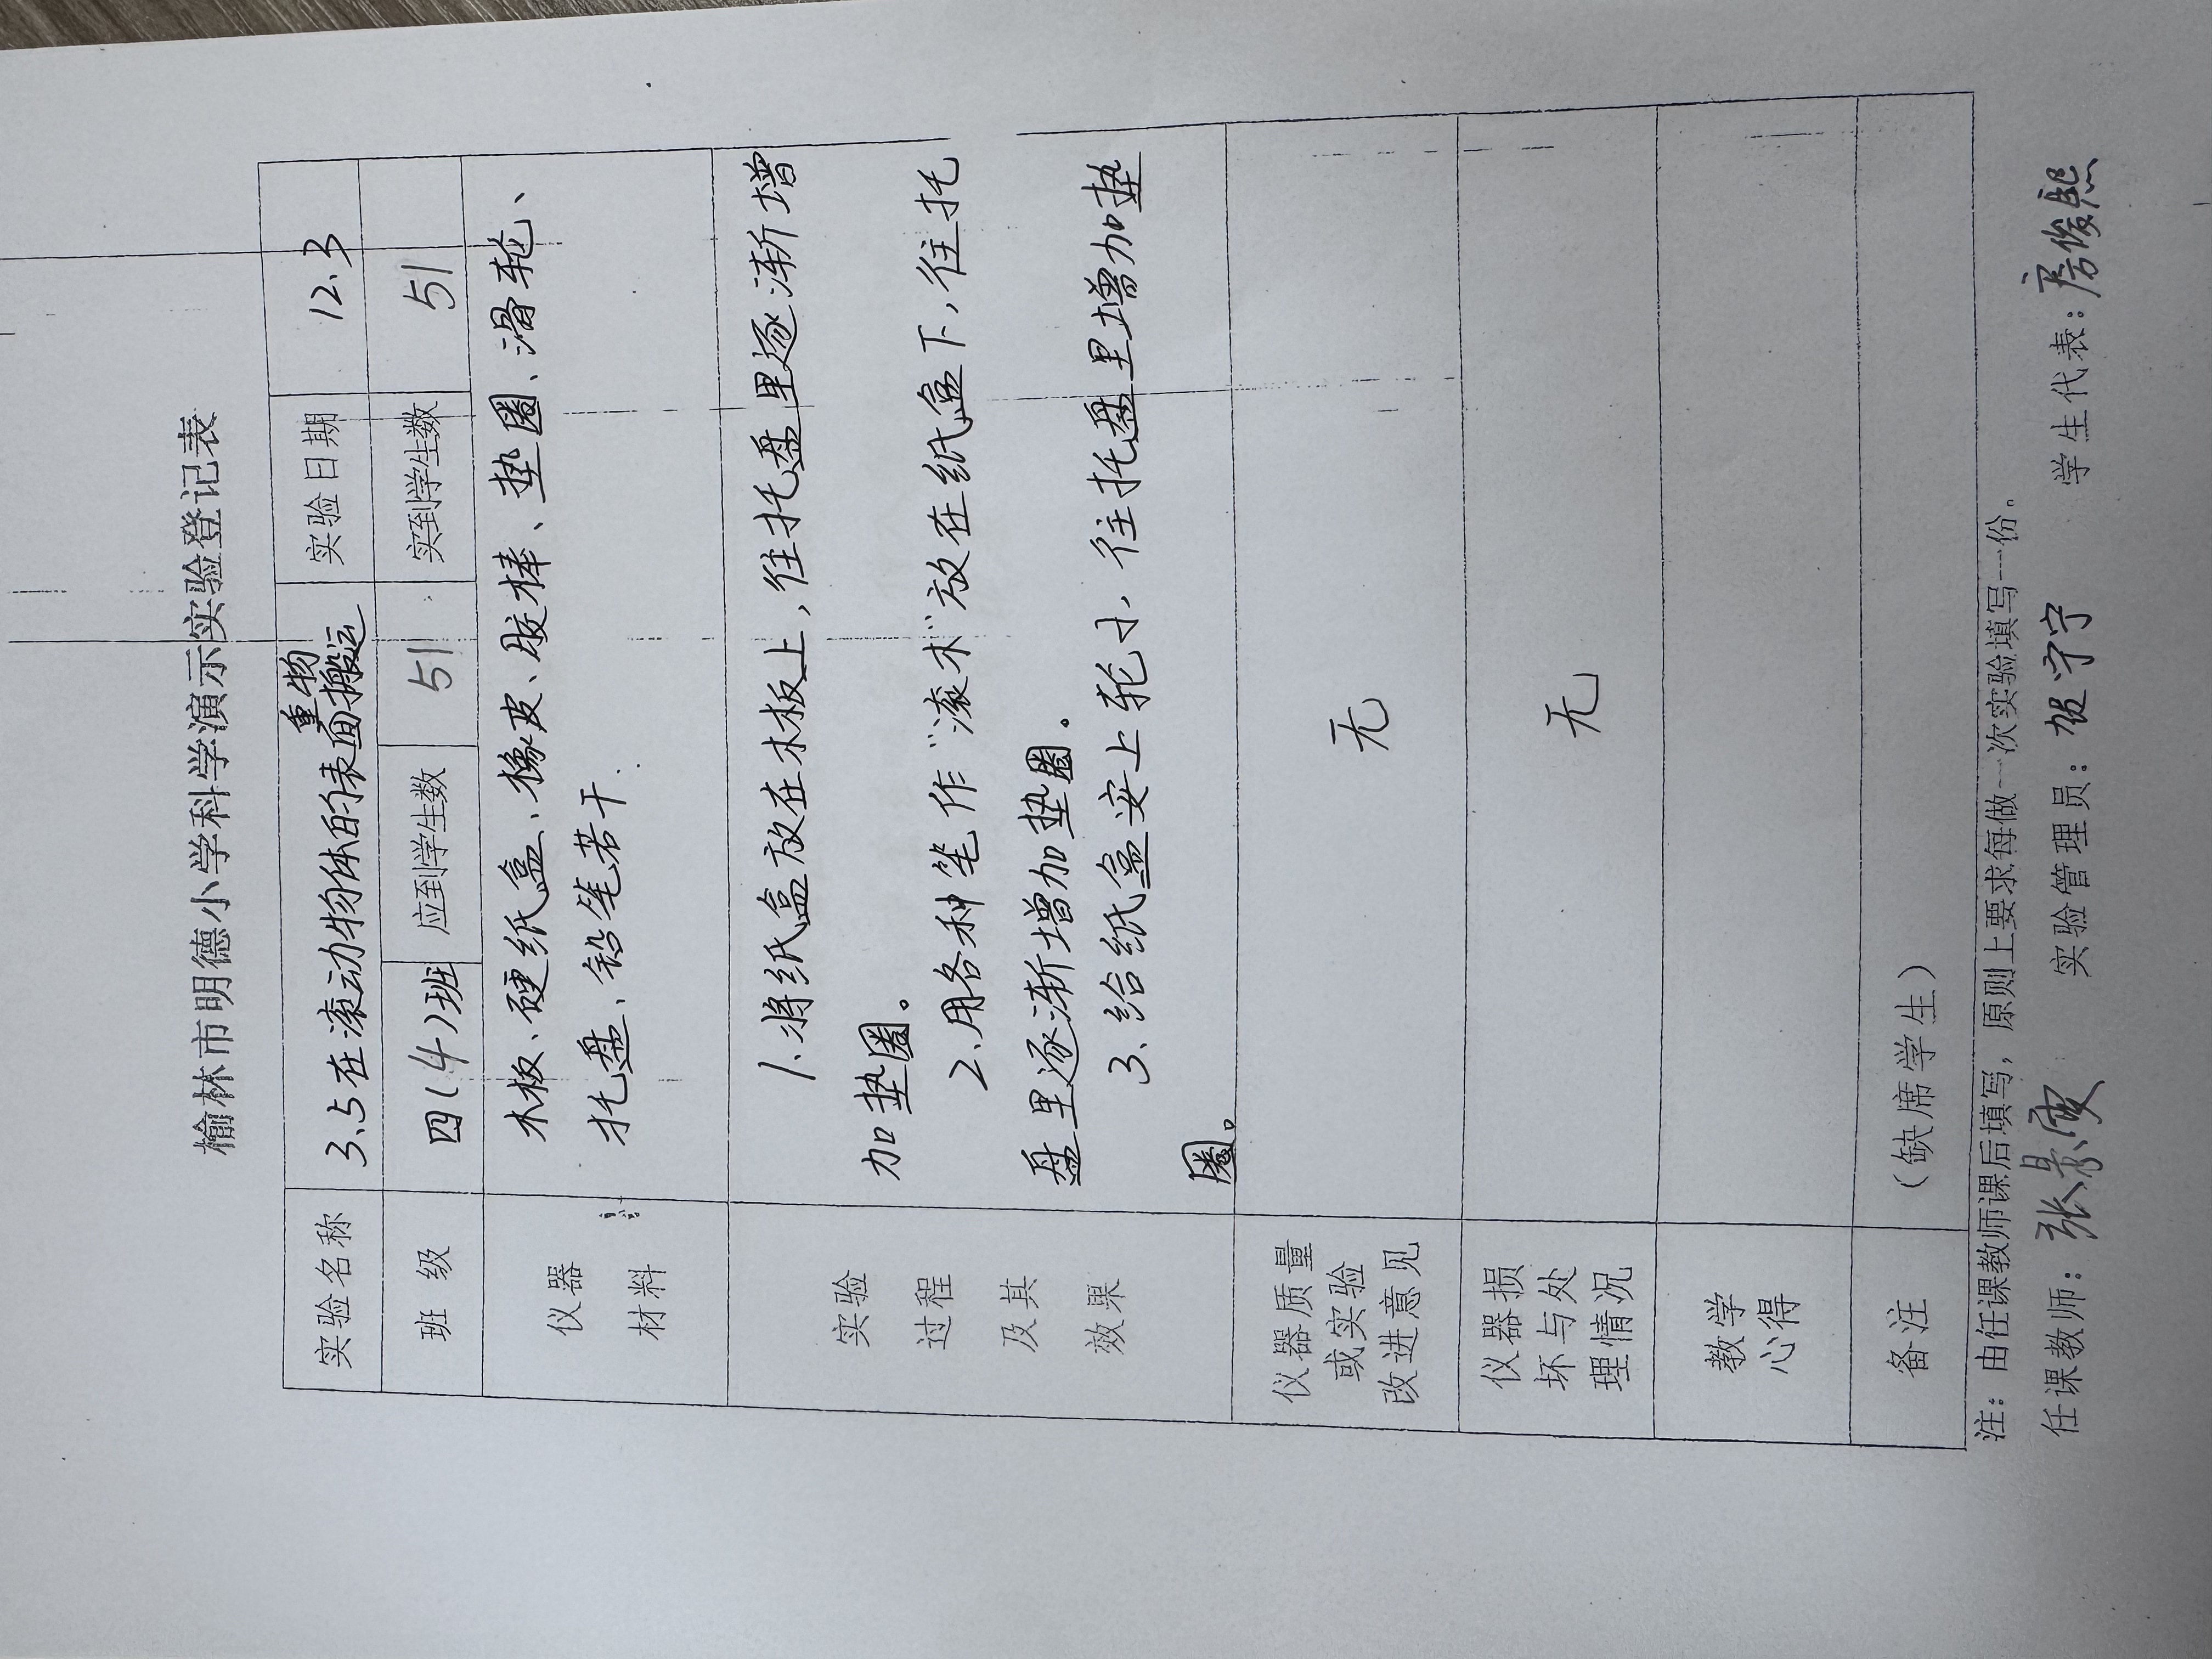 榆林市明德小学科学演示实验登记表
实验名称 3.5在滚动物体的表面搬运重物 实验日期 12.3
班 级 四(4)班 应到学生数 51 实到学生数 51
仪器 木板、硬纸盒、橡皮、胶棒、垫圈、滑轮、
材料 托盘、铅笔若干.
实验 1.将纸盒放在木板上,往托盘里逐渐增
过程 加垫圈。
及其 2.用各种笔作“滚木”放在纸盒下,往托
效果 盘里逐渐增加垫圈。
3.给纸盒安上轮子,往托盘里增加垫
圈。
仪器质量
或实验 无
改进意见
仪器损
坏与处 无
理情况
教学
心得
备注 (缺席学生)
注:由任课教师课后填写,原则上要求每做一次实验填写一份。
任课教师:张景 实验管理员:宁宁 学生代表:房俊熙